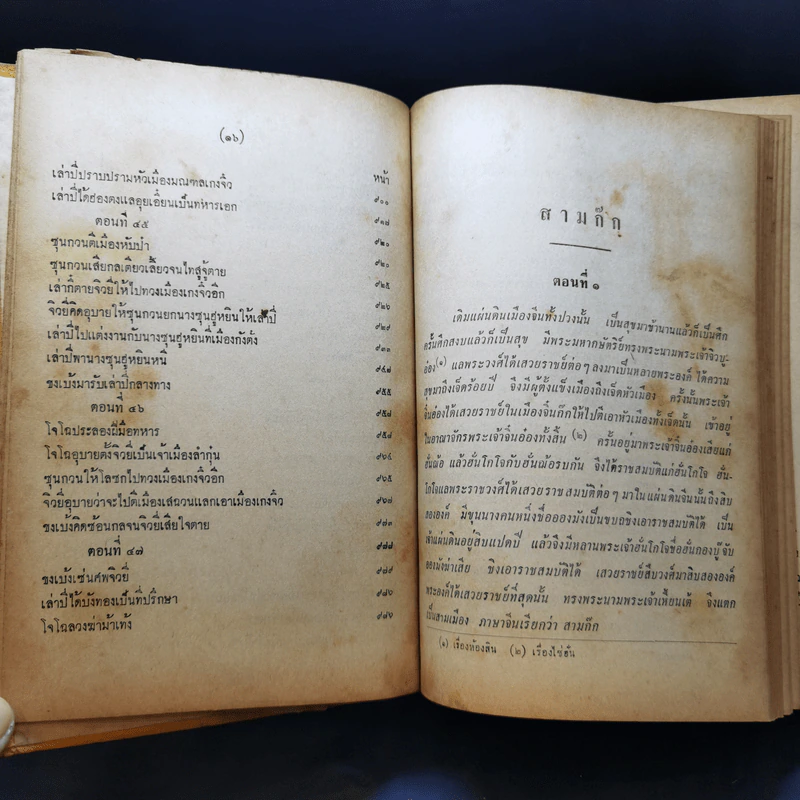 (๑๖)
หน้า
เล่าปี่ปราบปรามหัวเมืองมณฑลเกงจิ๋ว ๙๐๑
เล่าปี่ได้ฮองตงแลอุยเอี๋ยนเป็นทหารเอก ๙๑๗
ตอนที่ ๔๕
ซุนกวนตีเมืองหับป๋า ๙๒๐
ซุนกวนเสียกลเตียวเลี้ยวจนไทสูจู้ตาย ๙๒๐
เล่ากี๋ตายจิวยี่ให้ไปทวงเมืองเกงจิ๋วอีก ๙๒๕
จิวยี่คิดอุบายให้ซุนกวนยกนางซุนฮูหยินให้เล่าปี่ ๙๒๖
เล่าปี่ไปแต่งงานกับนางซุนฮูหยินที่เมืองกังตั๋ง ๙๒๙
เล่าปี่พานางซุนฮูหยินหนี
ขงเบ้งมารับเล่าปี่กลางทาง
ตอนที่ ๔๖
โจโฉประลองฝีมือทหาร
โจโฉอุบายตั้งจิวยี่เป็นเจ้าเมืองลำกุ๋น
ซุนกวนให้โลซกไปทวงเมืองเกงจิ๋วอีก ๙๖๕
จิวยี่อุบายว่าจะไปตีเมืองเสฉวนแลกเอาเมืองเกงจิ๋ว ๙๖๗
ขงเบ้งคิดซ้อนกลจนจิวยี่เสียใจตาย ๙๗๓
ตอนที่ ๔๗
ขงเบ้งเซ่นศพจิวยี่
เล่าปี่ได้บังทองเป็นที่ปรึกษา
โจโฉลวงฆ่าม้าเท้ง
สามก๊ก
ตอนที่ ๑
เดิมแผ่นดินเมืองจีนทั้งปวงนั้น เป็นสุขมาช้านานแล้วก็เป็นศึก
ครั้นศึกสงบแล้วก็เป็นสุข มีพระมหากษัตริย์ทรงพระนามพระเจ้าจิวบู-
อ๋อง(๑) แลพระวงศ์ได้เสวยราชย์ต่อๆ ลงมาเป็นหลายพระองค์ ได้ความ
สุขมาถึงเจ็ดร้อยปี จึงมีผู้ตั้งแข็งเมืองถึงเจ็ดหัวเมือง ครั้งนั้นพระเจ้า
จิ๋นอ๋องได้เสวยราชย์ในเมืองจิ๋นก๊กให้ไปตีเอาหัวเมืองทั้งเจ็ดนั้น เข้าอยู่
ในอาณาจักรพระเจ้าจิ๋นอ๋องทั้งสิ้น(๒) ครั้นอยู่มาพระเจ้าจิ๋นอ๋องเสียแก่
ฮั่นฌ้อ แล้วฮั่นโกโจกับฮั่นฌ้อรบกัน จึงได้ราชสมบัติแก่ฮั่นโกโจ ฮั่น-
โกโจแลพระราชวงศ์ได้เสวยราชสมบัติต่อๆ มาในแผ่นดินจีนนั้นถึงสิบ
สององค์ มีขุนนางคนหนึ่งชื่ออองมังเป็นขบถชิงเอาราชสมบัติได้ เป็น
เจ้าแผ่นดินอยู่สิบแปดปี แล้วจึงมีหลานพระเจ้าฮั่นโกโจชื่อฮั่นกองบู๊จับ
อองมังฆ่าเสีย ชิงเอาราชสมบัติได้ เสวยราชย์สืบวงศ์มาสิบสององค์
พระองค์ได้เสวยราชย์ที่สุดนั้น ทรงพระนามพระเจ้าเหี้ยนเต้ จึงแตก
เป็นสามเมือง ภาษาจีนเรียกว่า สามก๊ก
(๑) เรื่องห้องสิน (๒) เรื่องไซ่ฮั่น